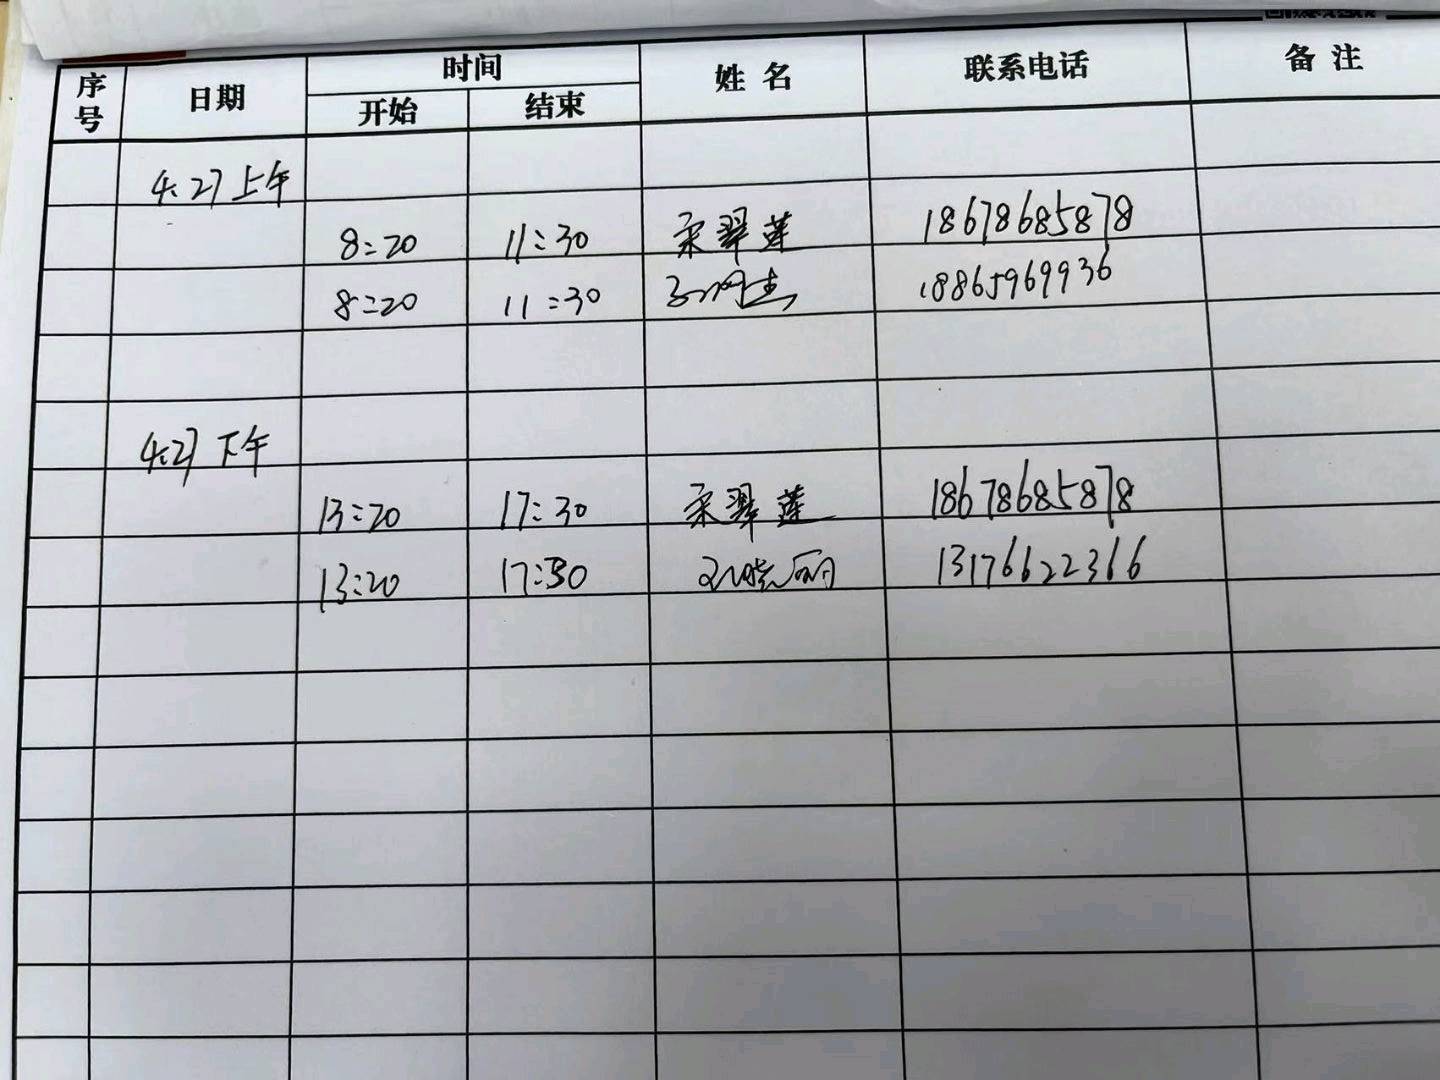 序号 日期 时间 姓名 联系电话 备注
开始 结束
4.27上午
8:20 11:30 宋翠莲 18678685878
8:20 11:30 18865969936
4.27下午
13:20 17:30 宋翠莲 18678685878
13:20 17:30 刘晓丽 13176622366